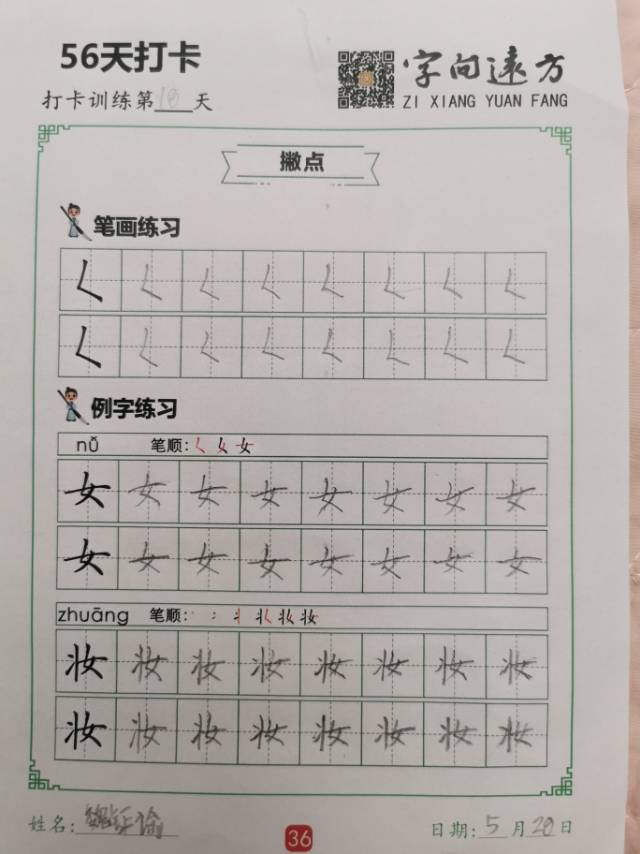 56天打卡
字向遠方
打卡训练第18天
ZI XIANG YUAN FANG
撇点
笔画练习
𡿨 𡿨 𡿨 𡿨 𡿨 𡿨 𡿨 𡿨
𡿨 𡿨 𡿨 𡿨 𡿨 𡿨 𡿨 𡿨
例字练习
nǚ 笔顺:
女 女 女 女 女 女 女 女
女 女 女 女 女 女 女 女
zhuāng 笔顺:
妆 妆 妆 妆 妆 妆 妆 妆
妆 妆 妆 妆 妆 妆 妆 妆
姓名:
36
日期:5月20日